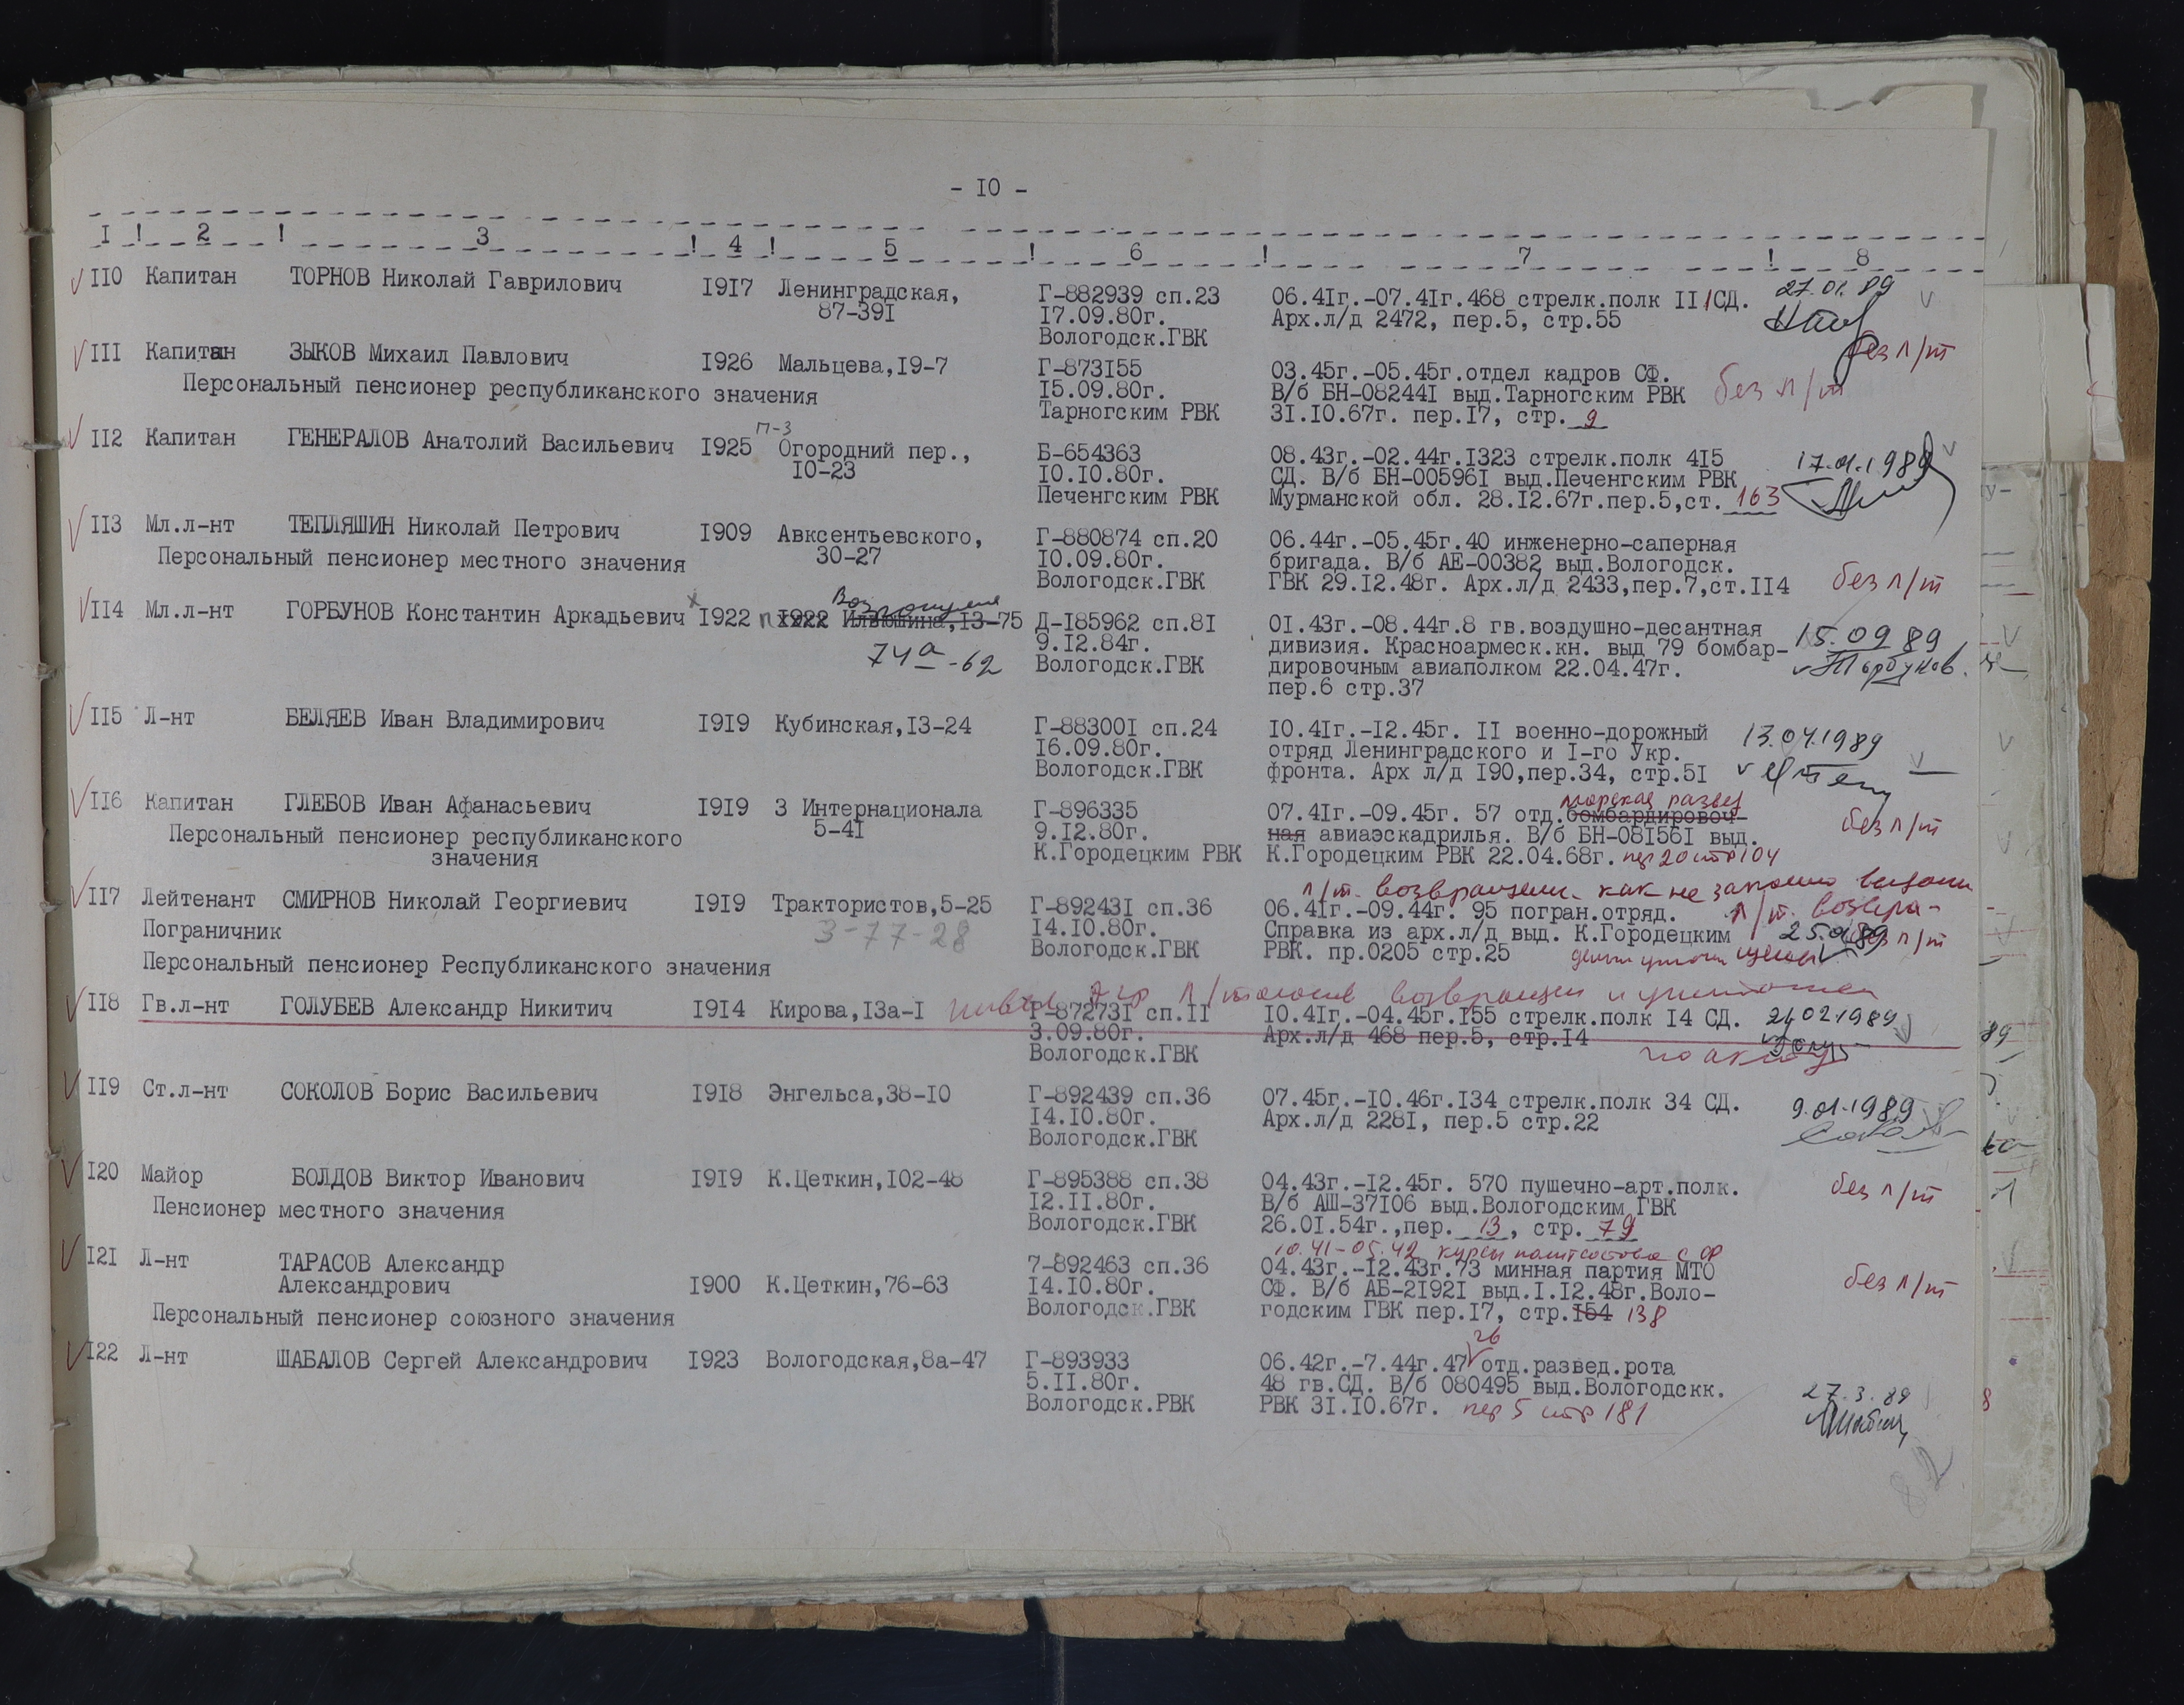 - I0 -
I ! 2 ! 3 ! 4 ! 5 ! 6 ! 7 ! 8
II0 Капитан ТОРНОВ Николай Гаврилович I9I7 Ленинградская, 87-39I
Г-882939 сп.23
I7.09.80г.
Вологодск.ГВК
06.4Iг.-07.4Iг.468 стрелк.полк II/СД.
Арх.л/д 2472, пер.5, стр.55
27.01.89
без л/т
III Капитан ЗЫКОВ Михаил Павлович I926 Мальцева,I9-7
Персональный пенсионер республиканского значения
Г-873I55
I5.09.80г.
Тарногским РВК
03.45г.-05.45г.отдел кадров СФ.
В/б БН-08244I выд.Тарногским РВК
3I.I0.67г. пер.I7, стр. 9
без л/т
II2 Капитан ГЕНЕРАЛОВ Анатолий Васильевич I925 Огородний пер., I0-23
п-3
Б-654363
I0.I0.80г.
Печенгским РВК
08.43г.-02.44г.I323 стрелк.полк 4I5
СД. В/б БН-00596I выд.Печенгским РВК
Мурманской обл. 28.I2.67г.пер.5,ст. 163
17.01.1989
II3 Мл.л-нт ТЕПЛЯШИН Николай Петрович I909 Авксентьевского, 30-27
Персональный пенсионер местного значения
Г-880874 сп.20
I0.09.80г.
Вологодск.ГВК
06.44г.-05.45г.40 инженерно-саперная
бригада. В/б АЕ-00382 выд.Вологодск.
ГВК 29.I2.48г. Арх.л/д 2433,пер.7,ст.II4
без л/т
II4 Мл.л-нт ГОРБУНОВ Константин Аркадьевич I922 I922 Ильюшина,I3-75
74а-62
Д-I85962 сп.8I
9.I2.84г.
Вологодск.ГВК
0I.43г.-08.44г.8 гв.воздушно-десантная
дивизия. Красноармеск.кн. выд 79 бомбар-
дировочным авиаполком 22.04.47г.
пер.6 стр.37
15.09 89
Горбунов.
II5 Л-нт БЕЛЯЕВ Иван Владимирович I9I9 Кубинская,I3-24
Г-88300I сп.24
I6.09.80г.
Вологодск.ГВК
I0.4Iг.-I2.45г. II военно-дорожный
отряд Ленинградского и I-го Укр.
фронта. Арх л/д I90,пер.34, стр.5I
13.04.1989
II6 Капитан ГЛЕБОВ Иван Афанасьевич I9I9 3 Интернационала 5-4I
Персональный пенсионер республиканского
значения
Г-896335
9.I2.80г.
К.Городецким РВК
морская развед
07.4Iг.-09.45г. 57 отд.бомбардировоч-
ная авиаэскадрилья. В/б БН-08I56I выд.
К.Городецким РВК 22.04.68г. пер 20 стр 104
без л/т
л/т. возвращен. как не законно выдан
II7 Лейтенант СМИРНОВ Николай Георгиевич I9I9 Трактористов,5-25
Пограничник
3-77-28
Персональный пенсионер Республиканского значения
Г-89243I сп.36
I4.I0.80г.
Вологодск.ГВК
06.4Iг.-09.44г. 95 погран.отряд.
Справка из арх.л/д выд. К.Городецким
РВК. пр.0205 стр.25
л/т. возвра-
без л/т
II8 Гв.л-нт ГОЛУБЕВ Александр Никитич I9I4 Кирова,I3а-I
Г-87273I сп.II
3.09.80г.
Вологодск.ГВК
I0.4Iг.-04.45г.I55 стрелк.полк I4 СД.
Арх.л/д 468 пер.5, стр.I4
по акту
II9 Ст.л-нт СОКОЛОВ Борис Васильевич I9I8 Энгельса,38-I0
Г-892439 сп.36
I4.I0.80г.
Вологодск.ГВК
07.45г.-I0.46г.I34 стрелк.полк 34 СД.
Арх.л/д 228I, пер.5 стр.22
9.01.1989
I20 Майор БОЛДОВ Виктор Иванович I9I9 К.Цеткин,I02-48
Пенсионер местного значения
Г-895388 сп.38
I2.II.80г.
Вологодск.ГВК
04.43г.-I2.45г. 570 пушечно-арт.полк.
В/б АШ-37I06 выд.Вологодским ГВК
26.0I.54г.,пер. 13, стр. 79
без л/т
10.41-05.42 курсы политсостава СФ
I2I Л-нт ТАРАСОВ Александр
Александрович I900 К.Цеткин,76-63
Персональный пенсионер союзного значения
7-892463 сп.36
I4.I0.80г.
Вологодск.ГВК
04.43г.-I2.43г.73 минная партия МТО
СФ. В/б АБ-2I92I выд.I.I2.48г.Воло-
годским ГВК пер.I7, стр.I54 138
без л/т
I22 Л-нт ШАБАЛОВ Сергей Александрович I923 Вологодская,8а-47
Г-893933
5.II.80г.
Вологодск.РВК
06.42г.-7.44г.47 отд.развед.рота
48 гв.СД. В/б 080495 выд.Вологодскк.
РВК 3I.I0.67г. пер 5 стр 181
27.3.89
82